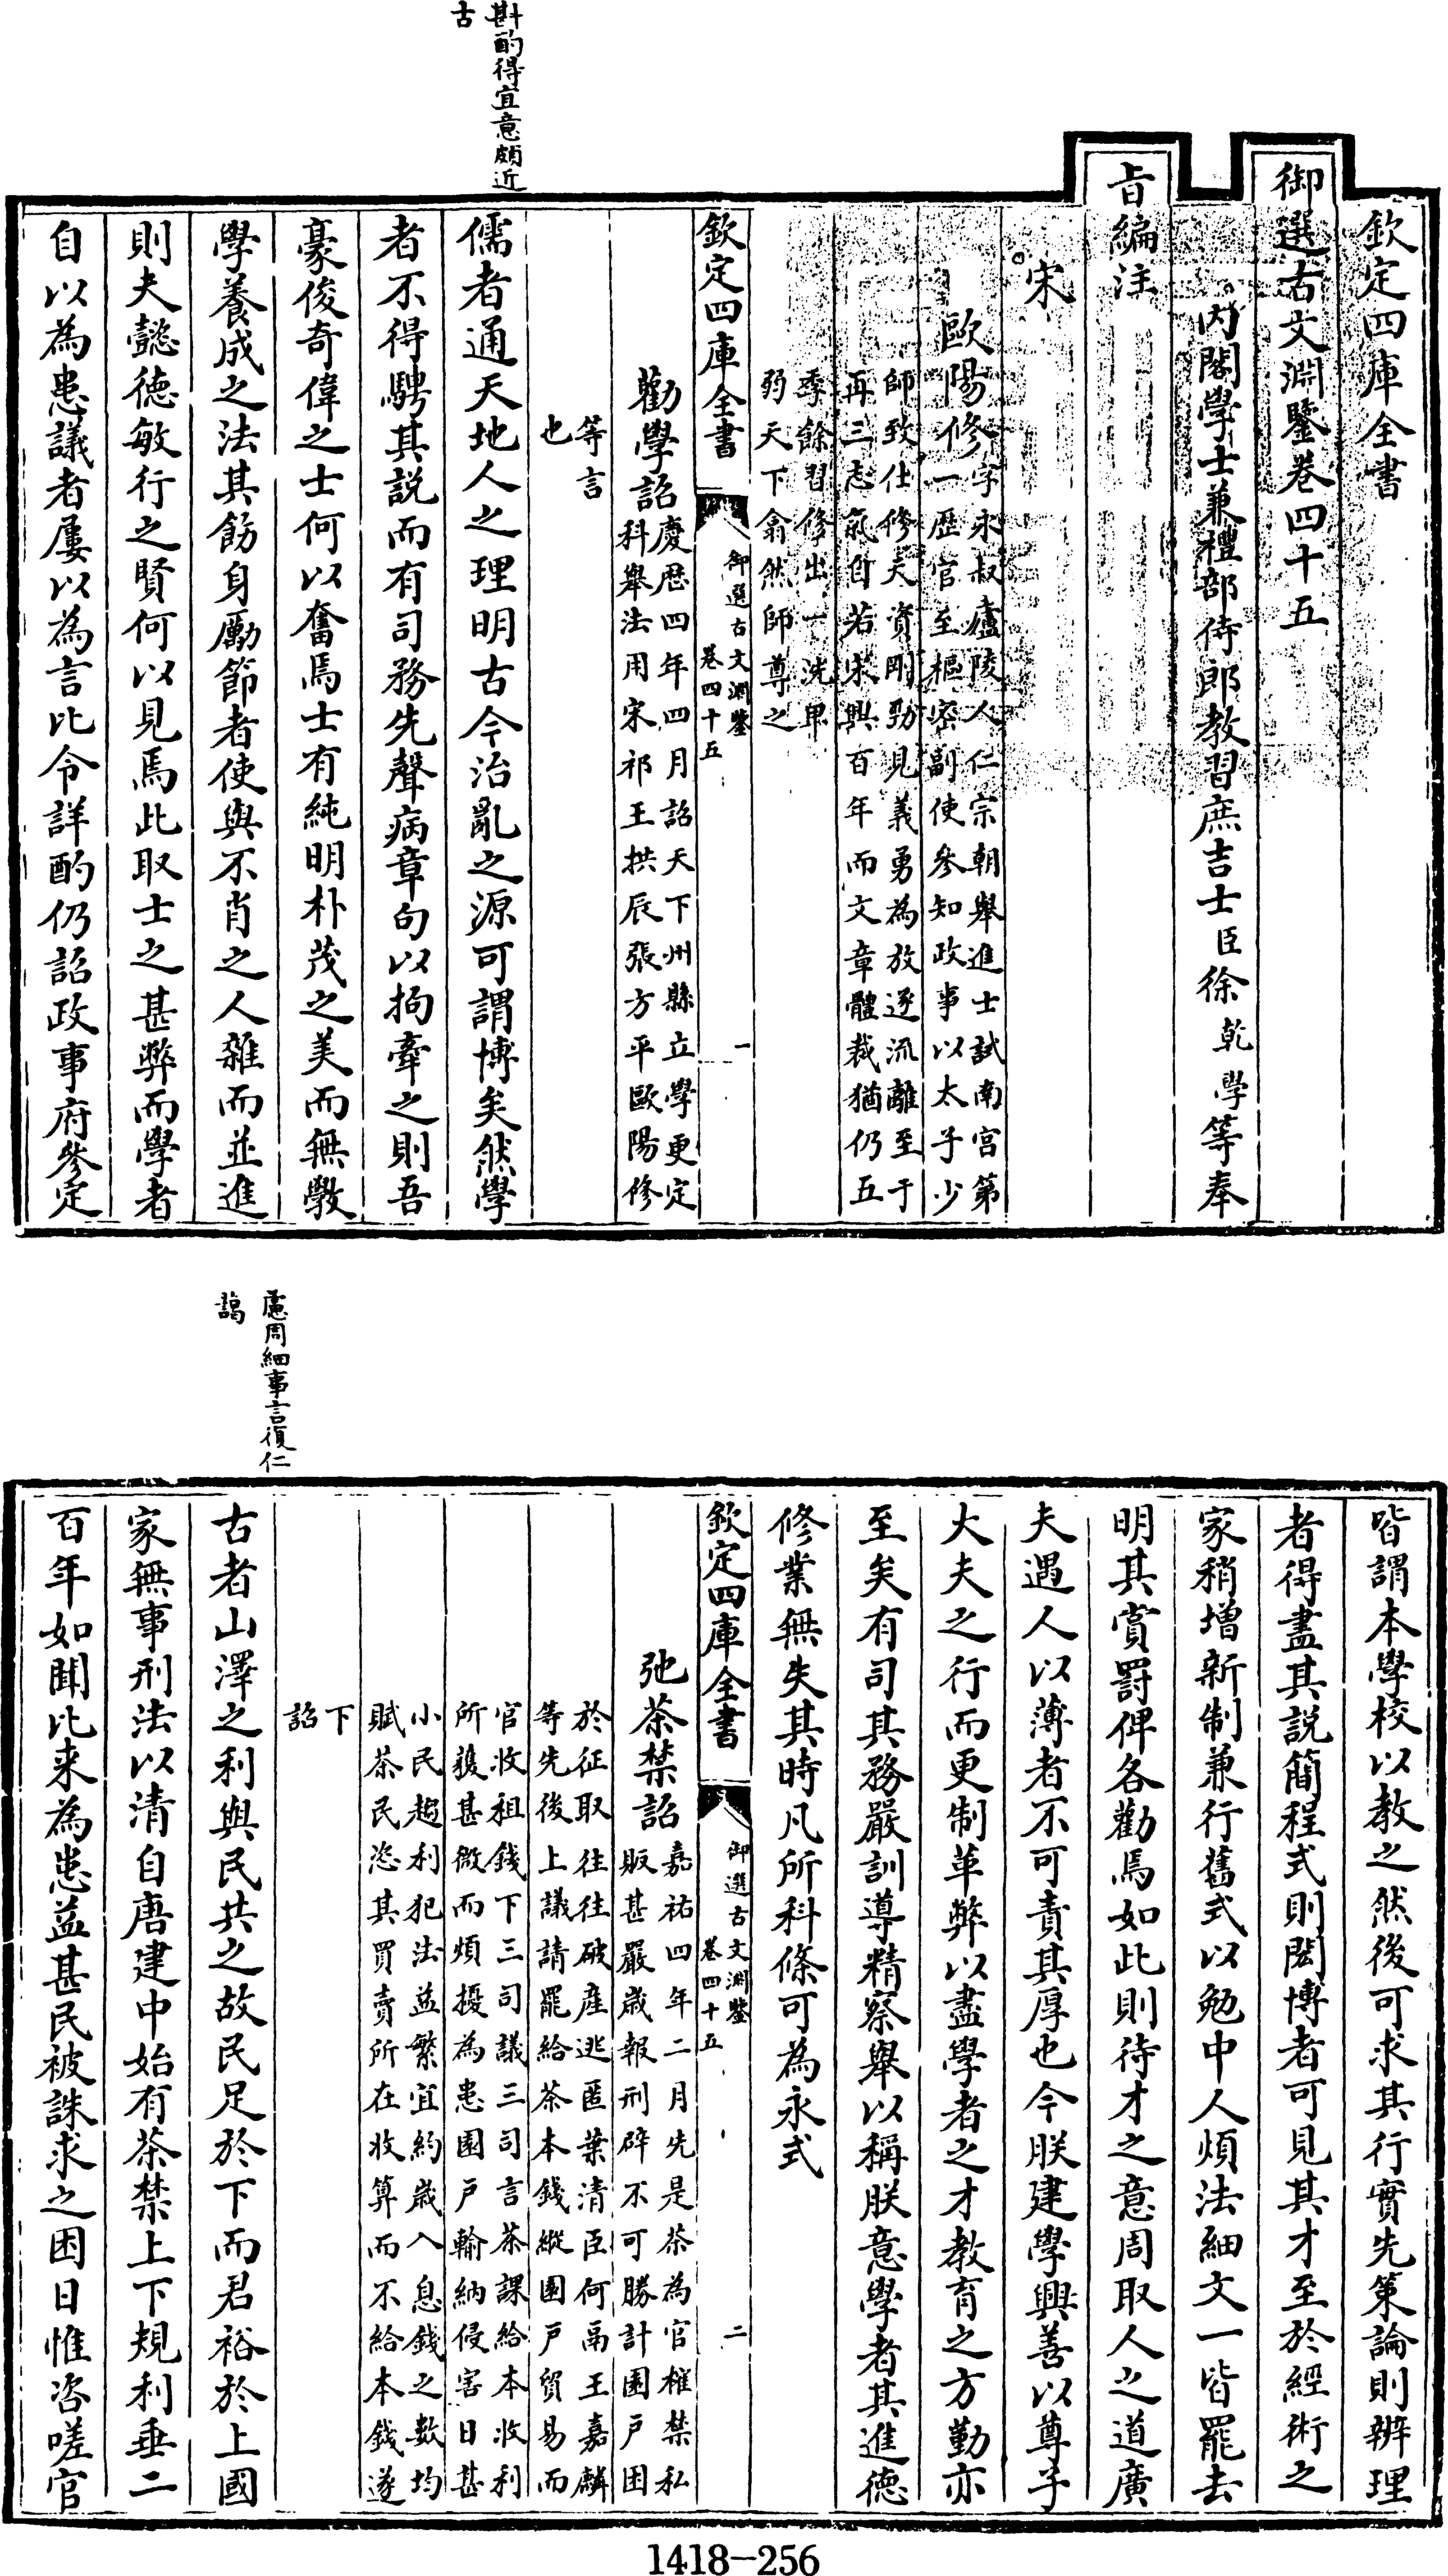 欽定四庫全書
御選古文淵鑒卷四十五
内閣學士兼禮部侍郎教習庶吉士臣徐乾學等奉
旨編注
宋
歐陽修字永叔廬陵人仁宗朝舉進士試南宫第
一歴官至樞密副使參知政事以太子少
師致仕修天資剛勁見義勇為放逐流離至于
再三志氣自若宋興百年而文章體裁猶仍五
季餘習修出一洗卑
弱天下翕然師尊之
欽定四庫全書
御選古文淵鑒
卷四十五
一
勸學詔慶歴四年四月詔天下州縣立學更定
科舉法用宋祁王拱辰張方平歐陽修
等言
也
斟酌得宜意頗近
古
儒者通天地人之理明古今治亂之源可謂博矣然學
者不得騁其説而有司務先聲病章句以拘牽之則吾
豪俊奇偉之士何以奮焉士有純明朴茂之美而無斆
學養成之法其飭身勵節者使與不肖之人雜而並進
則夫懿徳敏行之賢何以見焉此取士之甚弊而學者
自以為患議者屢以為言比令詳酌仍詔政事府參定
皆謂本學校以教之然後可求其行實先策論則辨理
者得盡其説簡程式則閎博者可見其才至於經術之
家稍增新制兼行舊式以勉中人煩法細文一皆罷去
明其賞罰俾各勸焉如此則待才之意周取人之道廣
夫遇人以薄者不可責其厚也今朕建學興善以尊子
大夫之行而更制革弊以盡學者之才教育之方勤亦
至矣有司其務嚴訓導精察舉以稱朕意學者其進德
修業無失其時凡所科條可為永式
欽定四庫全書
御選古文淵鑒
卷四十五
二
弛茶禁詔嘉祐四年二月先是茶為官榷禁私
販甚嚴歳報刑辟不可勝計園戸困
於征取往往破産逃匿葉清臣何鬲王嘉麟
等先後上議請罷給茶本錢縱園戸貿易而
官收租錢下三司議三司言茶課給本收利
所獲甚微而煩擾為患園戸輸納侵害日甚
小民趨利犯法益繁宜約歳入息錢之數均
賦茶民恣其買賣所在收算而不給本錢遂
下
詔
慮周細事言復仁
藹
古者山澤之利與民共之故民足於下而君裕於上國
家無事刑法以清自唐建中始有茶禁上下規利垂二
百年如聞比来為患益甚民被誅求之困日惟咨嗟官
1418-256